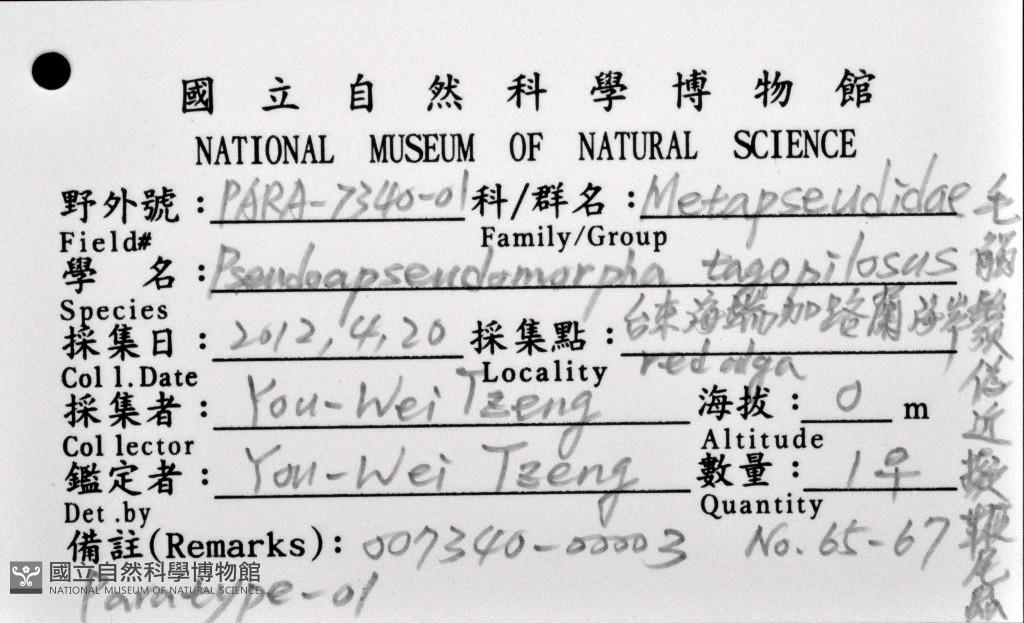 國立自然科學博物館
NATIONAL MUSEUM OF NATURAL SCIENCE
野外號: PARA-7340-01 科/群名: Metapseudidae
Field# Family/Group
學名: Pseudoapseudomorpha tagopilosus
Species
採集日: 2012,4,20 採集點: 台東海端加路蘭海岸
Coll.Date Locality red alga
採集者: You-Wei Tzeng 海拔: 0 m
Collector Altitude
鑑定者: You-Wei Tzeng 數量: 1♀
Det.by Quantity
備註(Remarks): 007340-00003 No. 65-67
Paratype-01
國立自然科學博物館
NATIONAL MUSEUM OF NATURAL SCIENCE
近